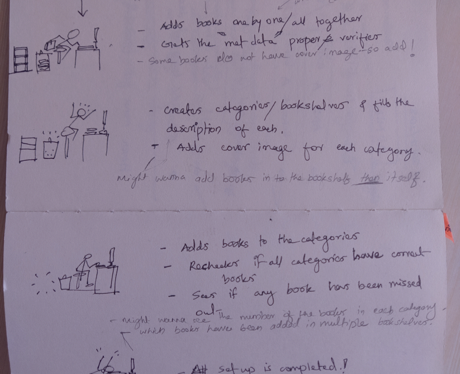 - Adds books one by one / all together
- Gets the met data proper & verifies
- Some books do not have cover image - so add!
- Creates categories/bookshelves & fills the
description of each.
- Adds cover image for each category.
Might wanna add books in to the bookshelf then itself.
- Adds books to the categories
- Rechecks if all categories have correct
books
- Sees if any book has been missed
out
- might wanna see the number of the books in each category
- which books have been added in multiple bookshelves.
- All set up is completed!